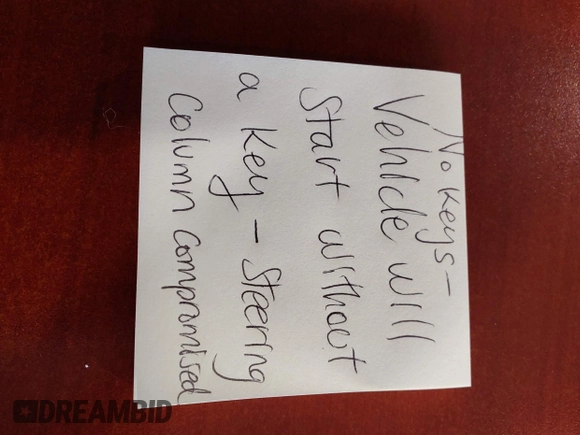 No keys-
Vehicle will
Start without
a key - Steering
Column compromised
DREAMBID